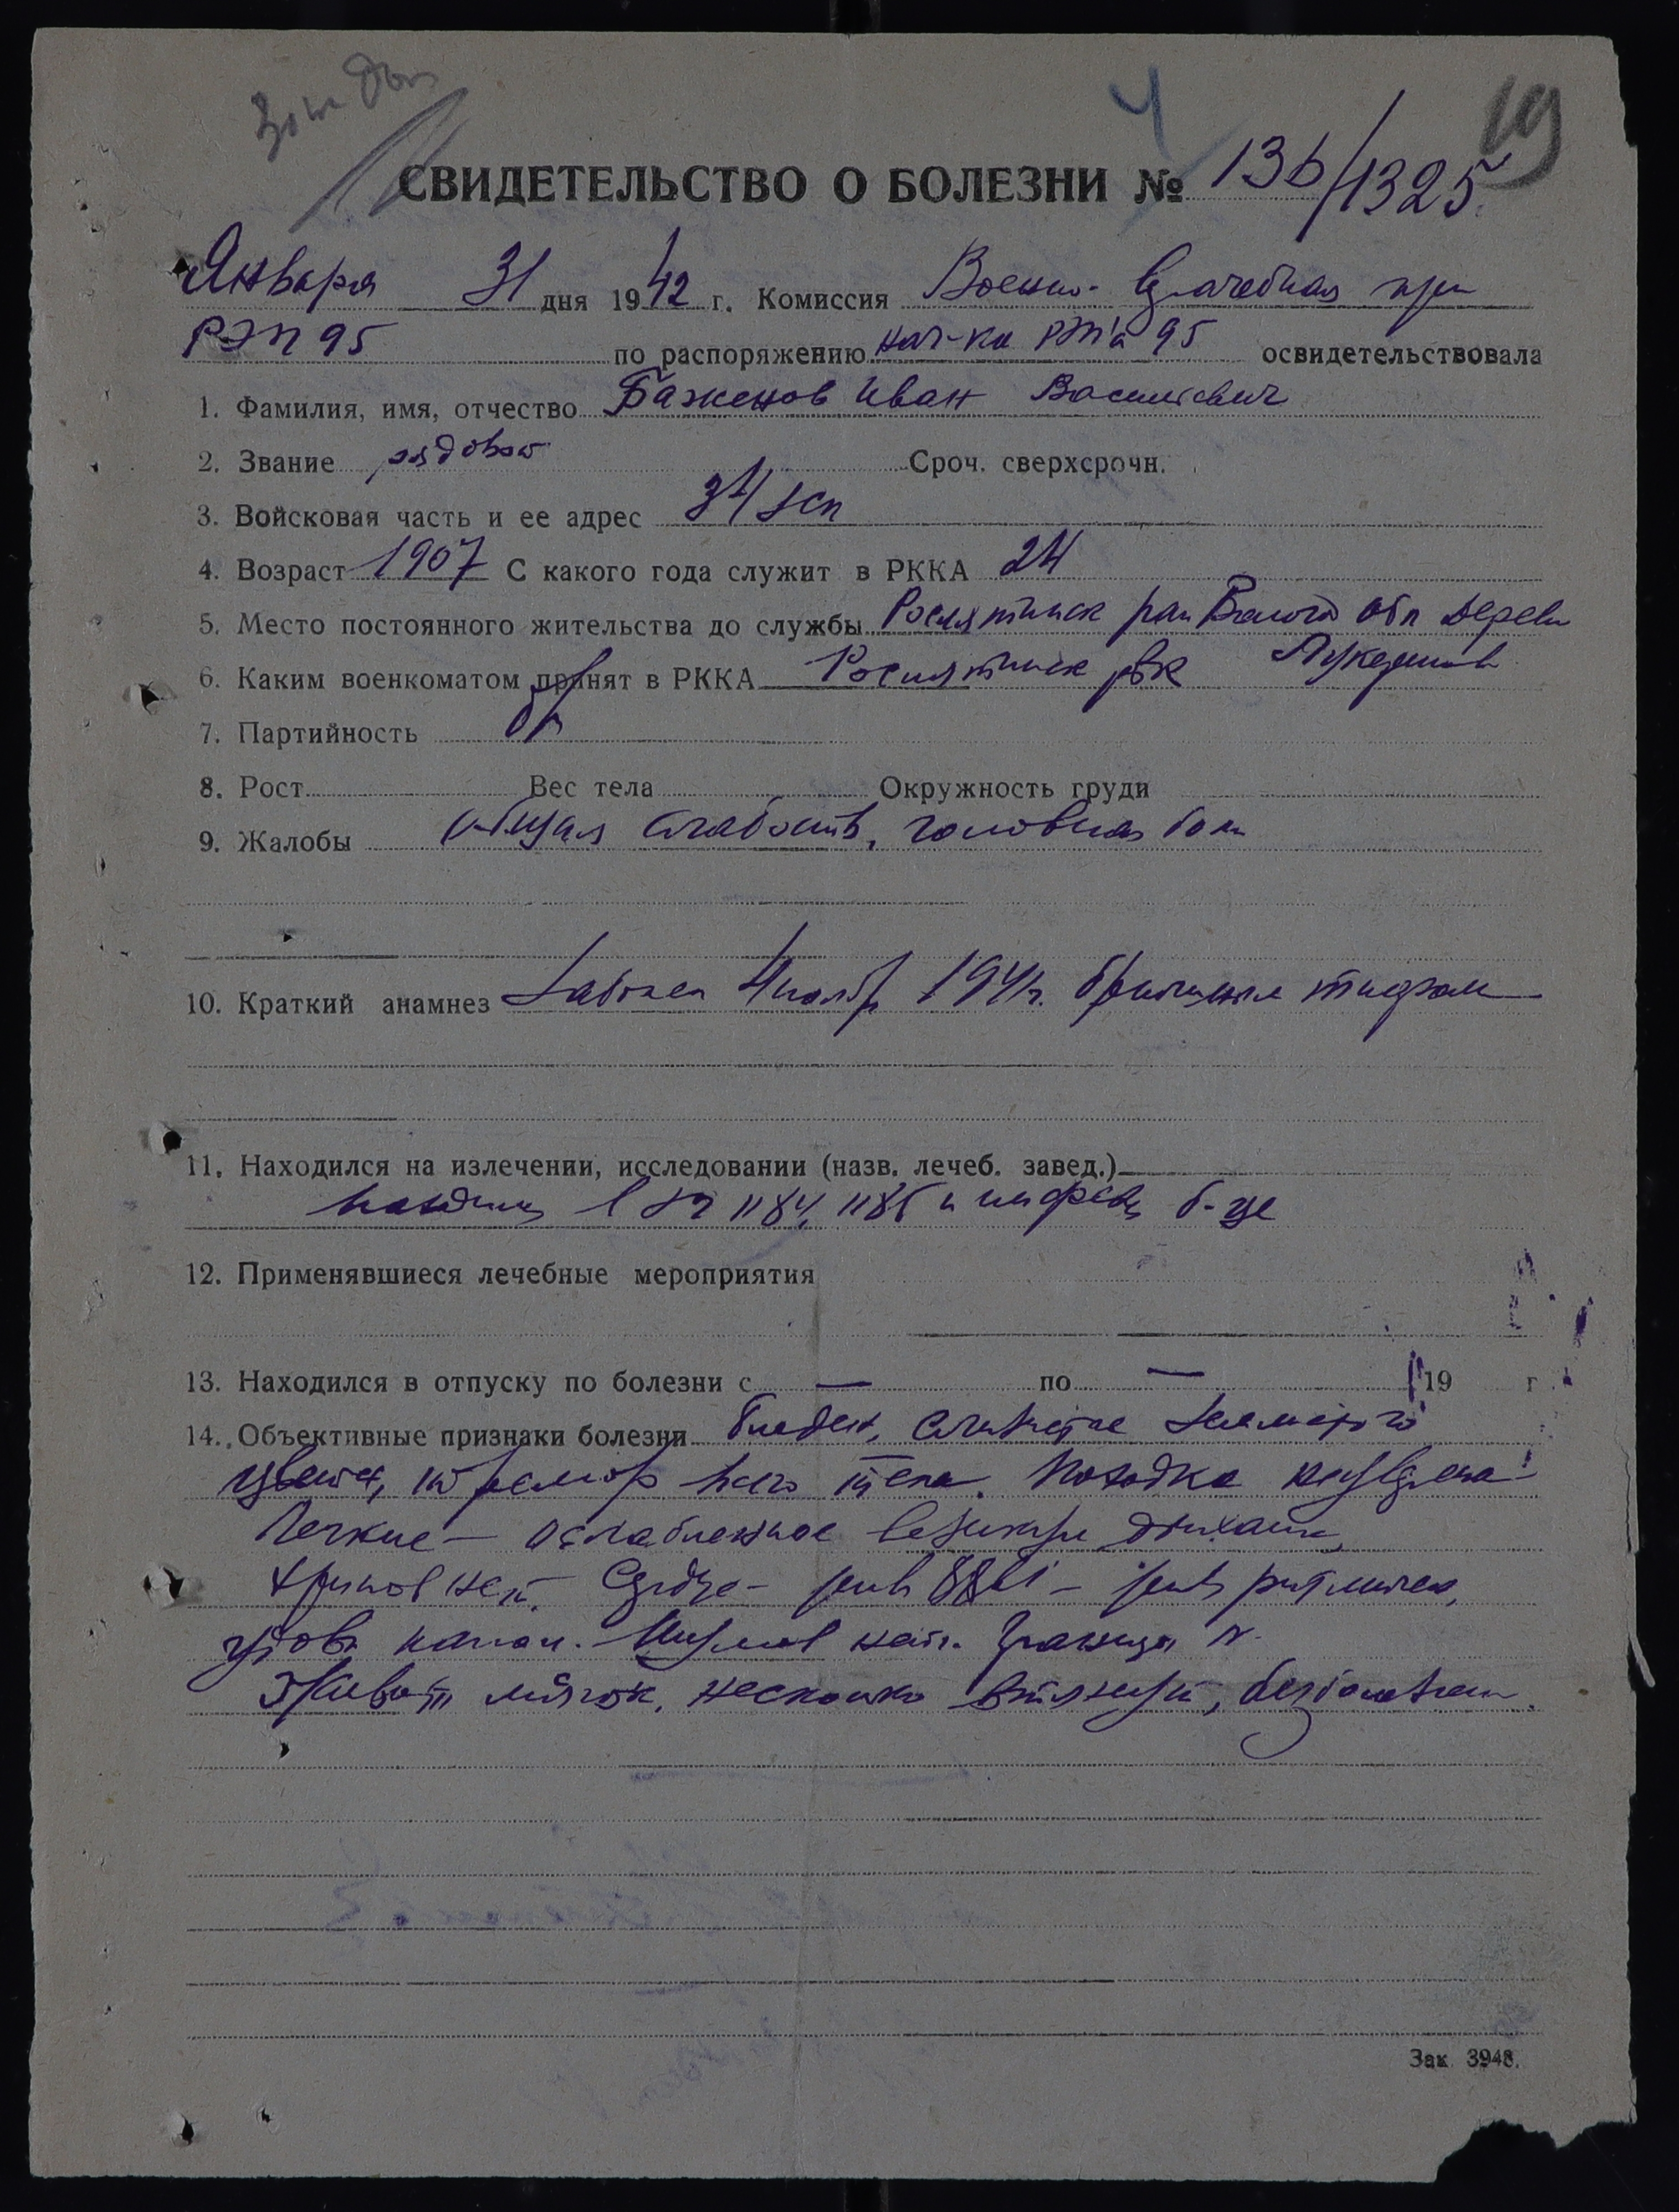 19
СВИДЕТЕЛЬСТВО О БОЛЕЗНИ № 136/1325
Января 31 дня 1942 г. Комиссия Военно-врачебная при
РЭП 95 по распоряжению нач-ка РЭП'а 95 освидетельствовала
1. Фамилия, имя, отчество Баженов Иван Васильевич
2. Звание рядовой Сроч. сверхсрочн.
3. Войсковая часть и ее адрес
4. Возраст 1907 С какого года служит в РККА
5. Место постоянного жительства до службы Рослятинск рай Волого обл дерев
6. Каким военкоматом принят в РККА Рослятинск рвк
7. Партийность бп
8. Рост Вес тела Окружность груди
9. Жалобы общая слабость, головная боль
10. Краткий анамнез Заболел ноябр 1941г. брюшным тифом
11. Находился на излечении, исследовании (назв. лечеб. завед.)
1184, 1185 и б-це
12. Применявшиеся лечебные мероприятия
13. Находился в отпуску по болезни с — по — 19 г
14. Объективные признаки болезни бледен, слизистые
цвета, тремор всего тела. Походка
Легкие — ослабленное везикул дыхание,
хрипов нет. Сердце — ритмичен,
Шумов нет. Границы N.
Живот мягок, несколько втянут, безболезнен.
Зак 3948.